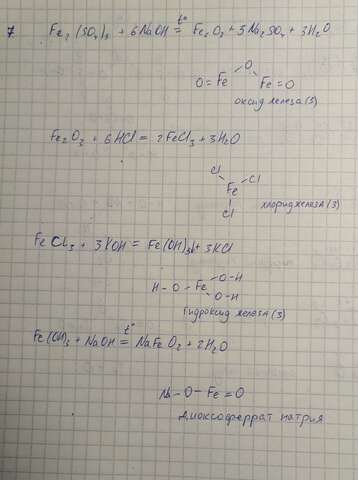 7 Fe₂(SO₄)₃ + 6NaOH =t° Fe₂O₃ + 3Na₂SO₄ + 3H₂O
O
O=Fe Fe=O
оксид железа (3)
Fe₂O₃ + 6HCl = 2FeCl₃ + 3H₂O
Cl Cl
Fe
Cl
хлорид железа (3)
FeCl₃ + 3KOH = Fe(OH)₃↓ + 3KCl
O-H
H-O-Fe
O-H
гидроксид железа (3)
Fe(OH)₃ + NaOH =t° NaFeO₂ + 2H₂O
Na-O-Fe=O
диоксоферрат натрия